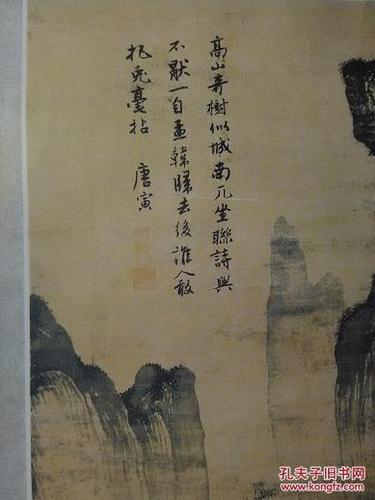 高山奇樹似城南兀坐聯詩興
不猒一自孟韓歸去後誰人敢
把兔毫拈 唐寅
孔夫子旧书网
www.kongfz.com